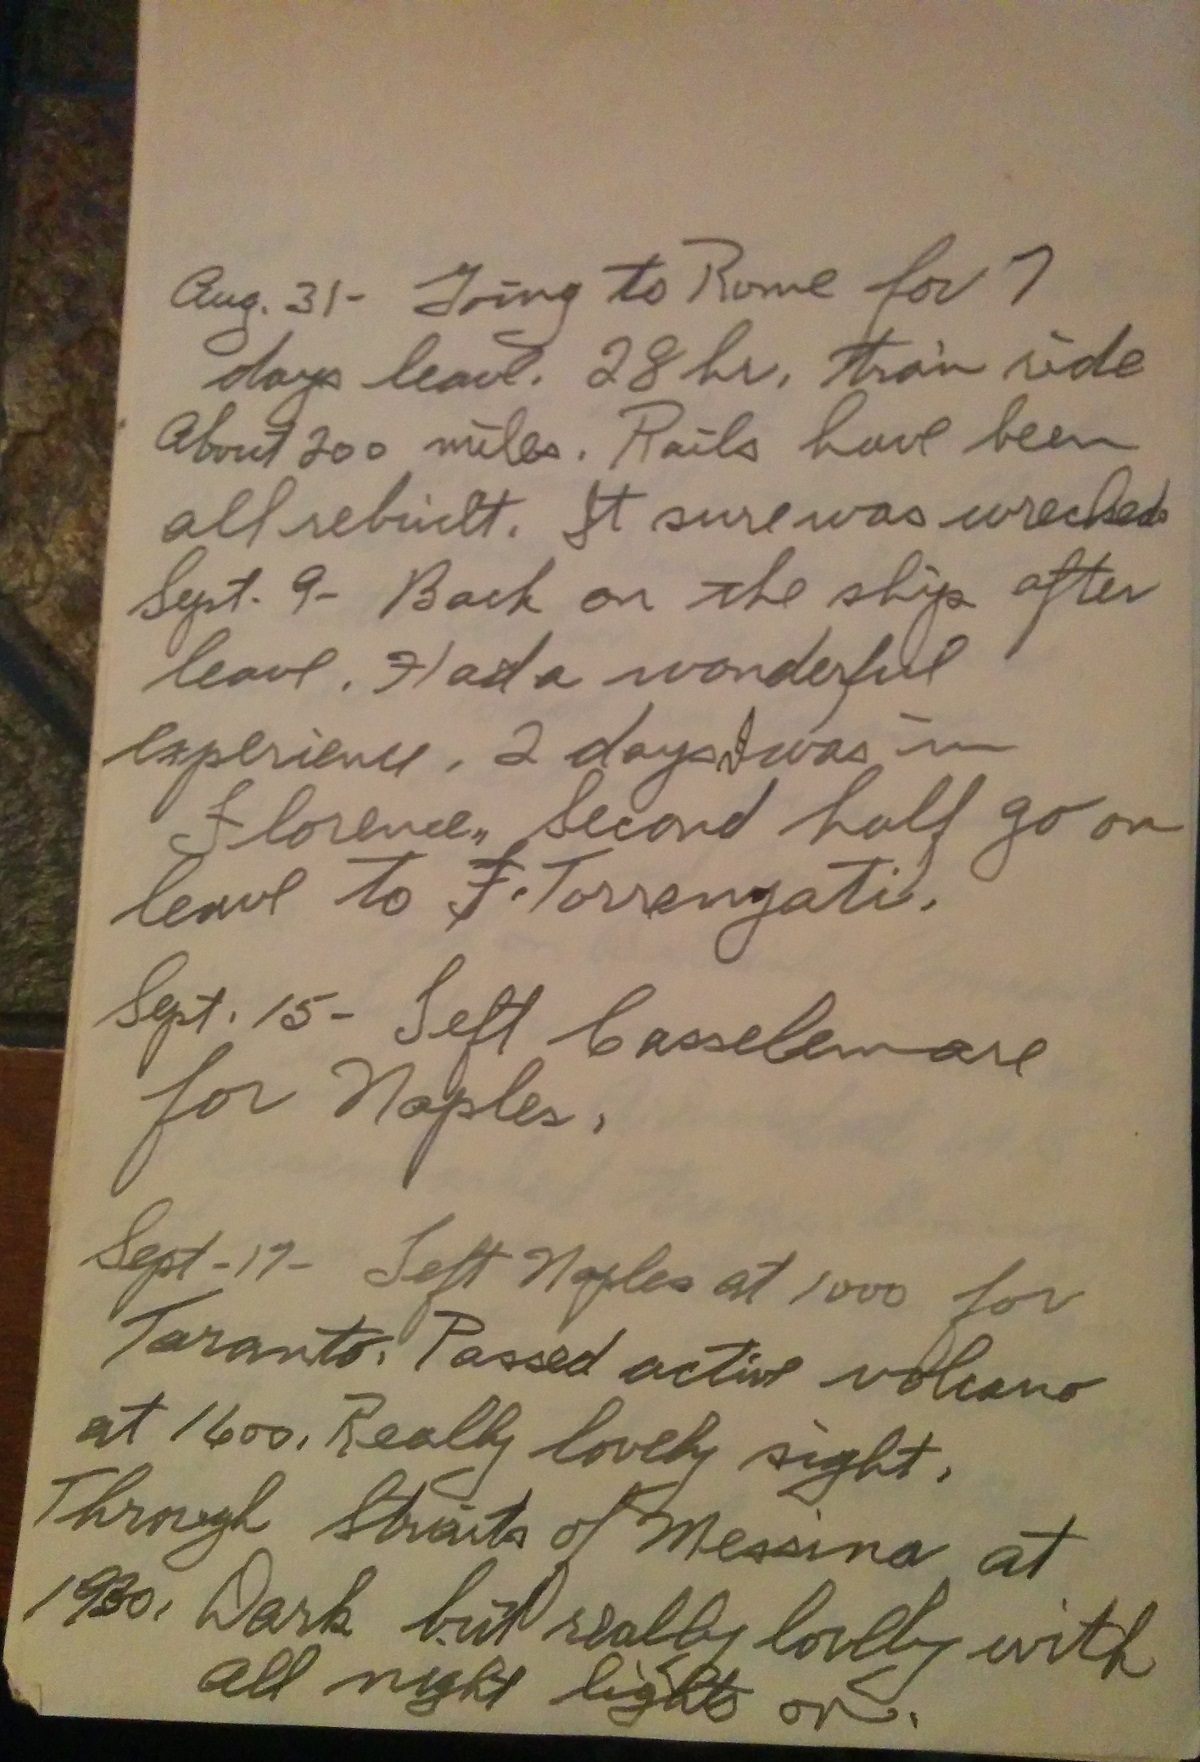 Aug. 31- Going to Rome for 7
days leave. 28 hr. train ride
About 200 miles. Rails have been
all rebuilt. It sure was wrecked.
Sept. 9- Back on the ship after
leave. Had a wonderful
experience. 2 days I was in
Florence. Second half go on
leave to F. Torrengati.
Sept. 15- Left Casselemare
for Naples.
Sept-17- Left Naples at 1000 for
Taranto. Passed active volcano
at 1600. Really lovely sight.
Through Straits of Messina at
1930. Dark but really lovely with
all night lights on.